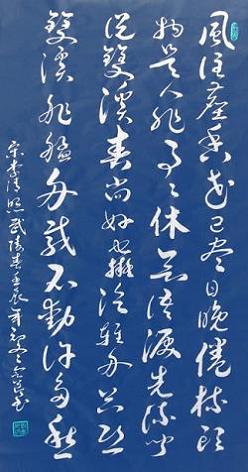 風住塵香花已盡日晚倦梳頭
物是人非事々休欲語淚先流聞
說雙溪春尚好也擬泛輕舟只恐
雙溪舴艋舟載不動許多愁
宋李清照武陵春壬辰年初冬書